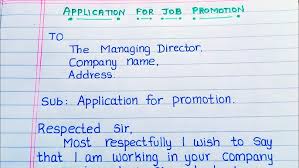 APPLICATION FOR JOB PROMOTION
TO
The Managing Director,
Company name,
Address.
Sub: Application for promotion.
Respected Sir,
Most respectfully I wish to say
that I am working in your Company